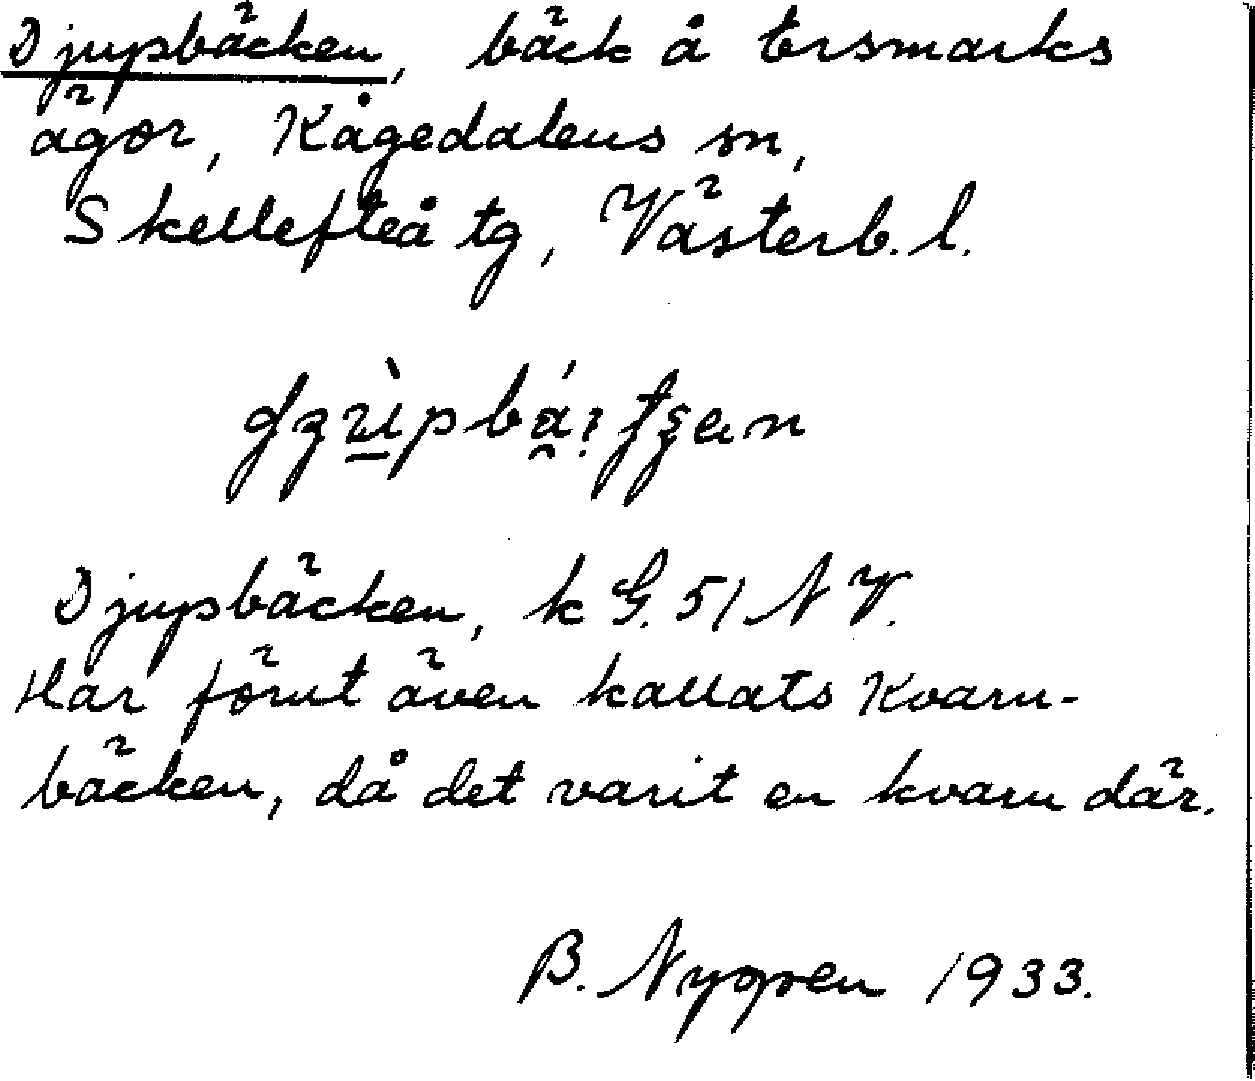 Djupbäcken, bäck å Ersmarks
ägor, Kågedalens sn,
Skellefteå tg, Västerb. l.
Djupbäcken, k G. 51 N V.
Har förut även kallats Kvarn-
bäcken, då det varit en kvarn där.
B. Nygren 1933.